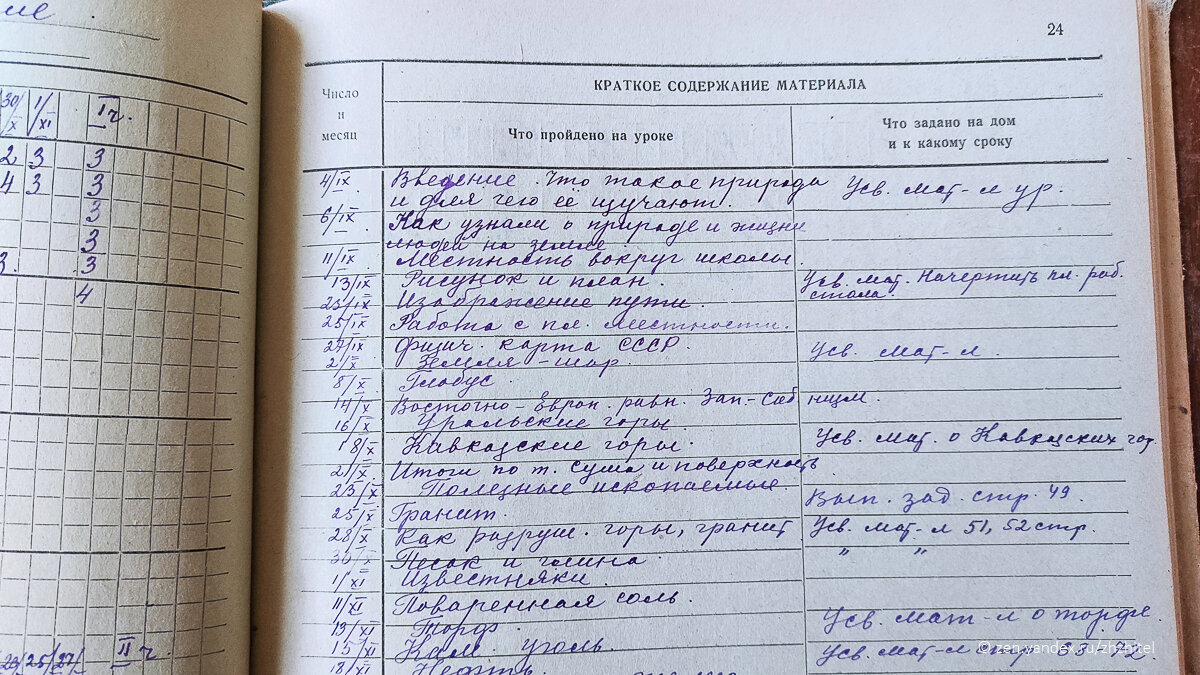 ие
24
30/X 1/XI Iч.
2 3 3
4 3 3
3
3
3. 3
4
23/ 25/ 27/ II ч
КРАТКОЕ СОДЕРЖАНИЕ МАТЕРИАЛА
Число
и
месяц
Что пройдено на уроке
Что задано на дом
и к какому сроку
4/IX Введение. Что такое природа Усв. мат-л ур.
и для чего ее изучают.
6/IX Как узнали о природе и жизни
людей на земле
11/IX Местность вокруг школы.
13/IX Рисунок и план. Усв. мат. Начертить пл. раб.
стола.
23/IX Изображение пути.
25/IX Работа с пл. местности.
27/IX Физич. карта СССР. Усв. мат-л.
2/X Земля - шар.
8/X Глобус.
14/X Восточно-Европ. равн. Зап.-Сиб низм.
16/X Уральские горы
18/X Кавказские горы. Усв. мат. о Кавказских гор.
21/X Итоги по т. Суша и поверхность
23/X Полезные ископаемые
25/X Гранит. Вып. зад. стр. 49.
28/X Как разруш. горы, гранит Усв. мат-л 51, 52 стр.
30/X Песок и глина " "
1/XI Известняки.
11/XI Поваренная соль.
13/XI Торф. Усв. мат-л о торфе.
15/XI Кам. уголь. Усв. мат-л стр.
18/XI Нефть.
© zen.yandex.ru/zhznitel